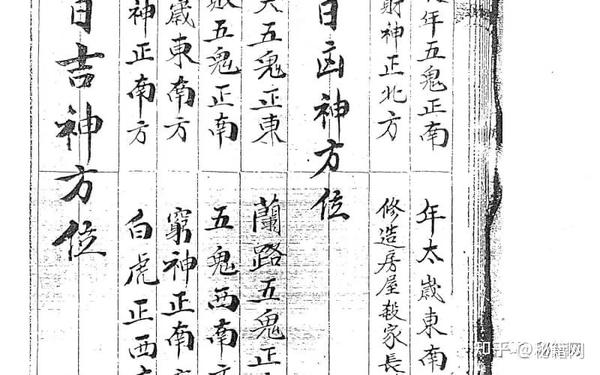 年五鬼正南 年太歲東南
財神正北方 修造房屋殺家長
日凶神方位
五鬼正東 蘭路五鬼正
五鬼正南 五鬼西南
歲東南方 窮神正南
神正南方 白虎正西
日吉神方位
知乎 @秘籍网